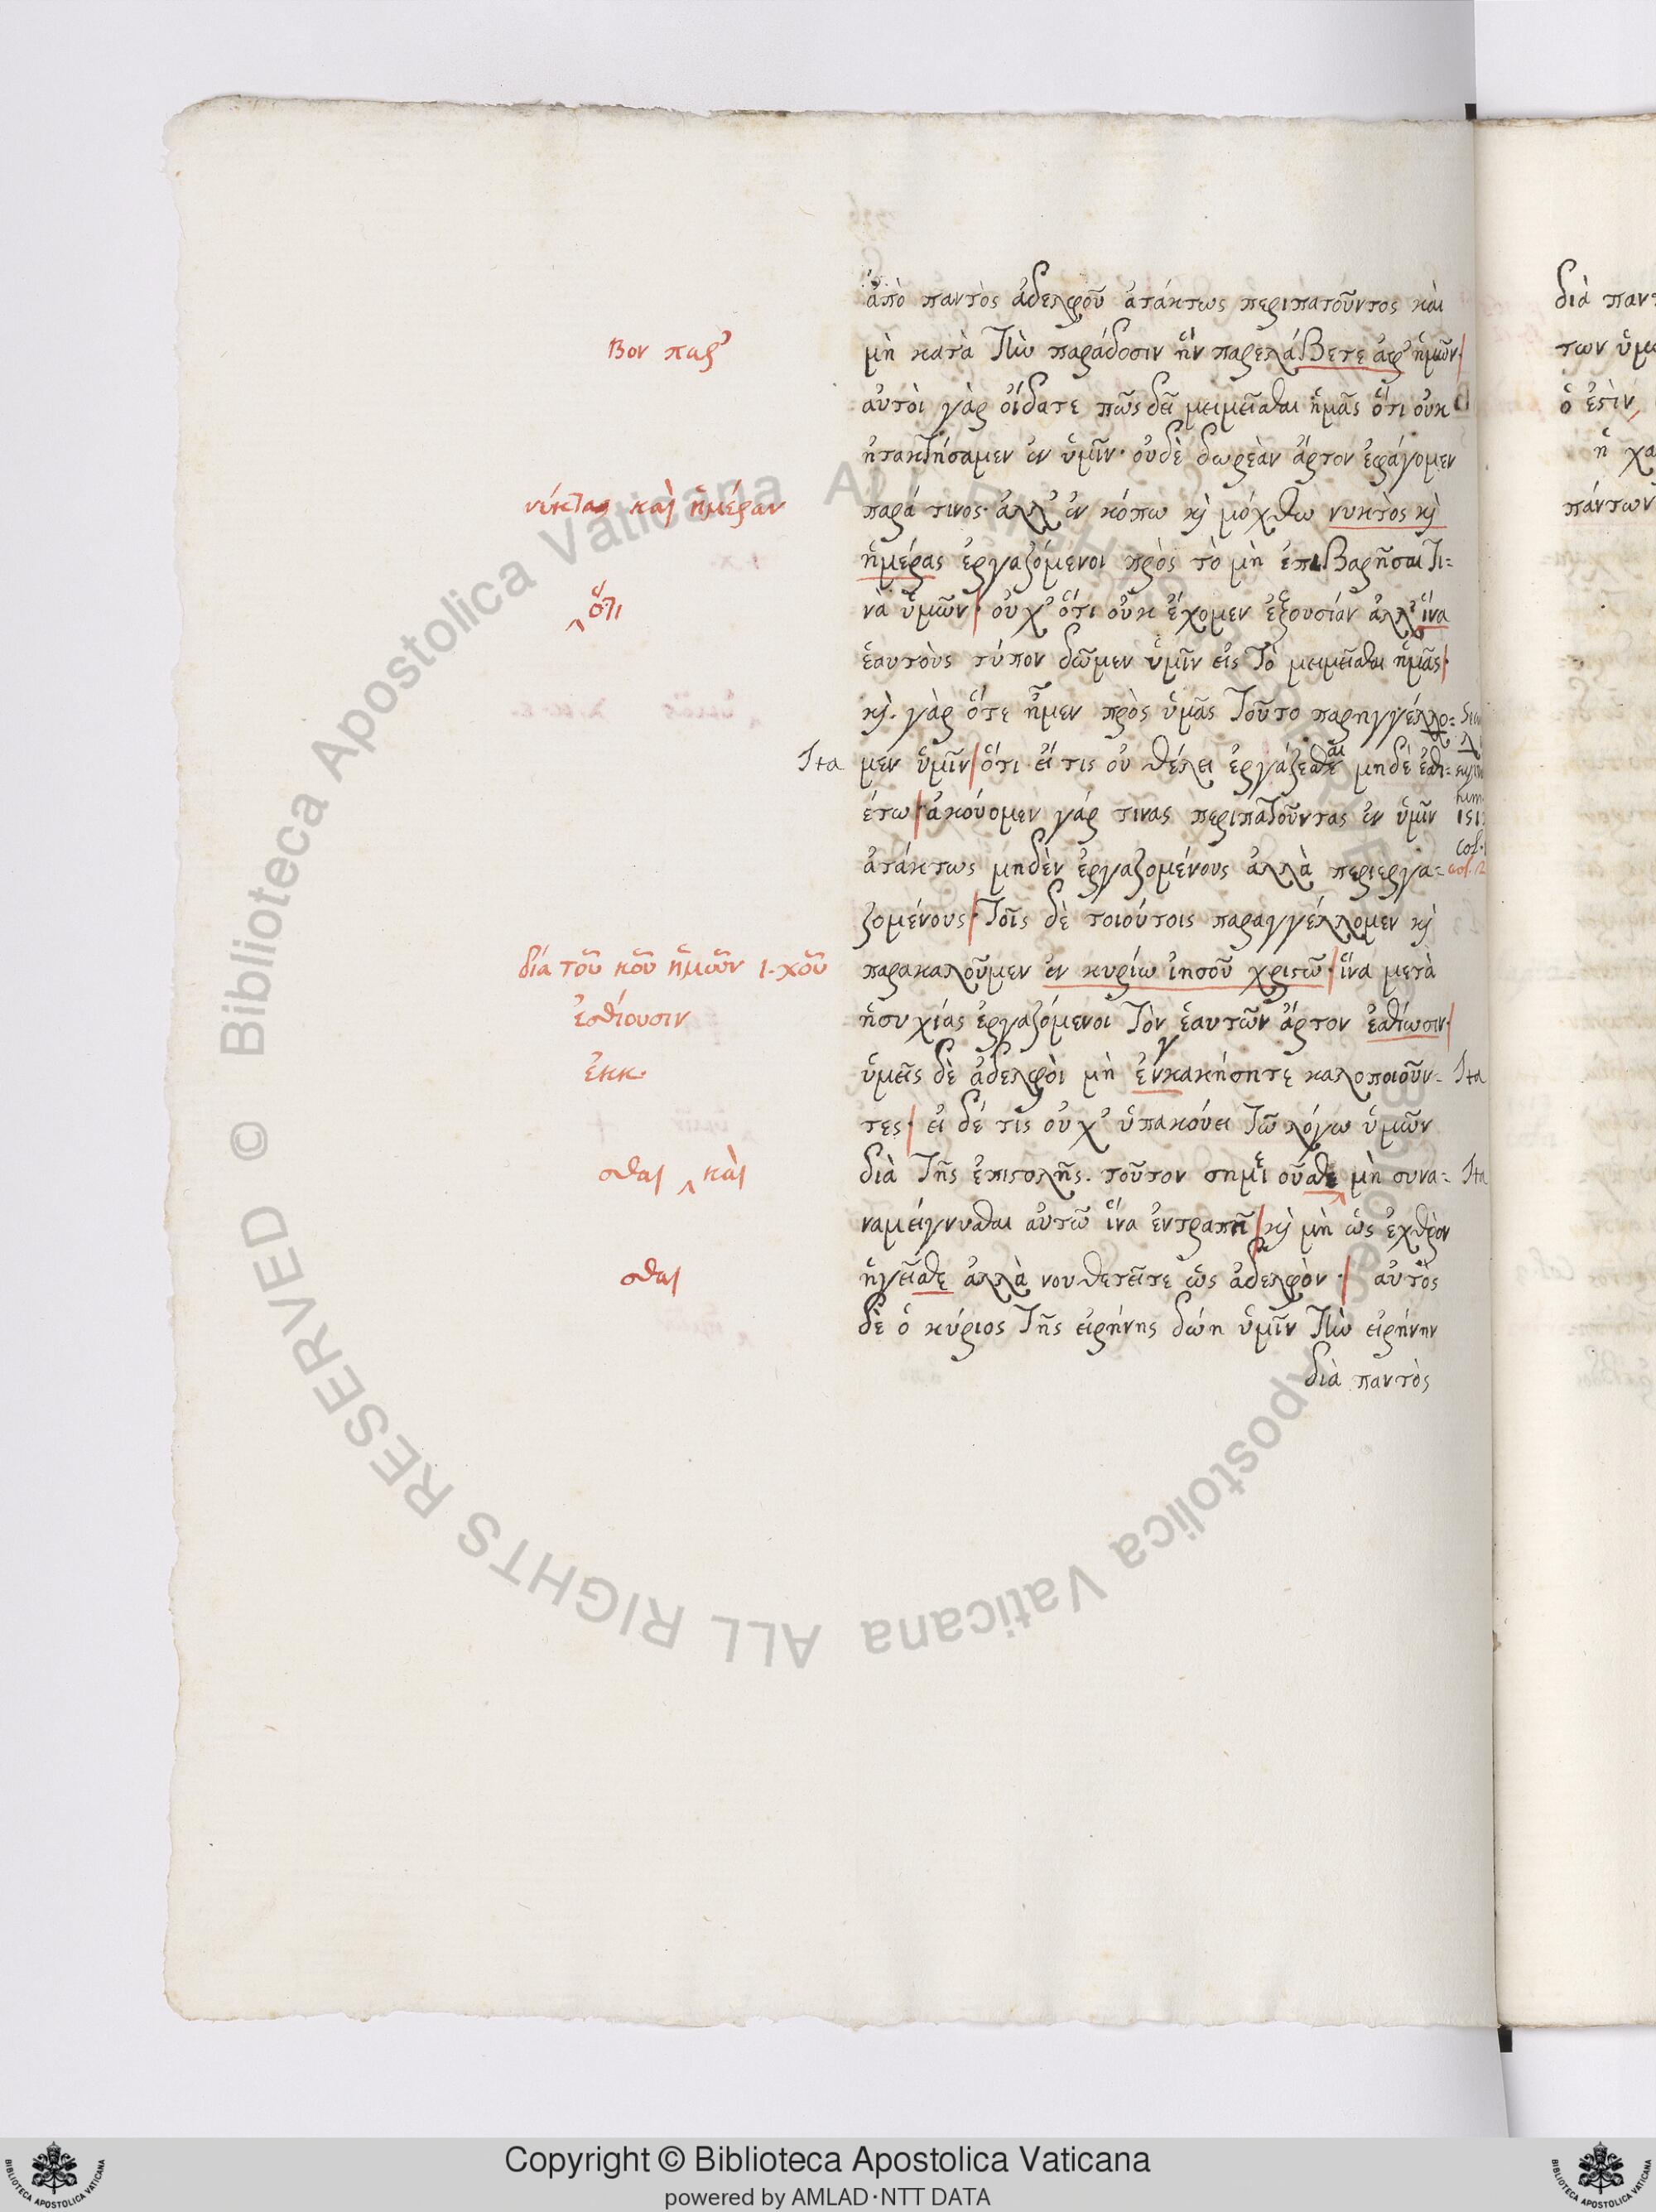 ἀπὸ παντὸς ἀδελφοῦ ἀτάκτως περιπατοῦντος καὶ
βον παρ’
μὴ κατὰ τὴν παράδοσιν ἣν παρελάβετε ἀφ’ ἡμῶν·
αὐτοὶ γὰρ οἴδατε πῶς δεῖ μειμεῖσθαι ἡμᾶς ὅτι οὐκ
ἠτακτήσαμεν ἐν ὑμῖν· οὐδὲ δωρεὰν ἄρτον ἐφάγομεν
νύκτας καὶ ἡμέραν
παρά τινος· ἀλλ’ ἐν κόπω κὶ μόχθω νυκτὸς κὶ
ἡμέρας ἐργαζόμενοι πρὸς τὸ μὴ ἐπιβαρῆσαι τι=
‸ ὅτι
νὰ ὑμῶν· οὐχ’ ὅτι οὐκ ἔχομεν ἐξουσίαν ἀλλ’ ἵνα
ἑαυτοὺς τύπον δῶμεν ὑμῖν εἰς τὸ μειμεῖσθαι ἡμᾶς·
κὶ γὰρ ὅτε ἦμεν πρὸς ὑμᾶς τοῦτο παρηγγέλλο=
Ita μεν ὑμῖν ὅτι εἴ τις οὐ θέλει ἐργάζεσθαι μηδὲ ἐσθι=
έτω· ἀκούομεν γάρ τινας περιπατοῦντας ἐν ὑμῖν
ἀτάκτως μηδὲν ἐργαζομένους ἀλλὰ περιεργα=
ζομένους· τοῖς δὲ τοιούτοις παραγγέλλομεν κὶ
διά τοῦ κοῦ ἡμῶν ι· χοῦ
παρακαλοῦμεν ἐν κυρίω ἰησοῦ χριστῶ· ἵνα μετὰ
ἐσθίουσιν
ἡσυχίας ἐργαζόμενοι τὸν ἑαυτῶν ἄρτον ἐσθίωσιν·
ἐκκ·
ὑμεῖς δὲ ἀδελφοὶ μὴ ἐνκακήσητε καλοποιοῦν= Ita
τες· εἰ δέ τις οὐχ’ ὑπακούει τῶ λόγω ὑμῶν
σθαι ‸ καὶ
διὰ τῆς ἐπιστολῆς. τοῦτον σημειοῦσθε μὴ συνα= Ita
ναμείγνυσθαι αὐτῶ ἵνα ἐντραπῆ κὶ μὴ ὡς ἐχθρὸν
σθαι
ἡγεῖσθε ἀλλὰ νουθετεῖτε ὡς ἀδελφὸν· αὐτὸς
δὲ ὁ κύριος τῆς εἰρήνης δώη ὑμῖν τὴν εἰρήνην
διὰ παντὸς
διὰ παντ
των ὑμ
ὅ ἐστὶν
ἡ χα
πάντων
© Biblioteca Apostolica Vaticana ALL RIGHTS RESERVED
Copyright © Biblioteca Apostolica Vaticana
powered by AMLAD·NTT DATA